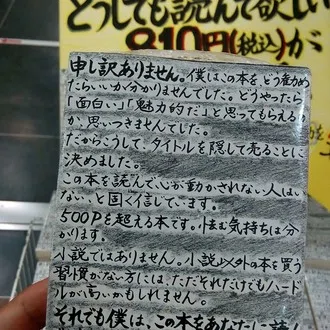 どうしても読んで欲しい
810円(税込)が
申し訳ありません。僕はこの本をどう勧め
たらいいか分かりませんでした。どうやったら
「面白い」「魅力的だ」と思ってもらえる
か、思いつきませんでした。
だからこうして、タイトルを隠して売ることに
決めました。
この本を読んで心が動かされない人はい
ない、と固く信じています。
500Pを超える本です。怯む気持ちは分
かります。
小説ではありません。小説以外の本を買う
習慣がない方には、ただそれだけでもハード
ルが高いかもしれません。
それでも僕は、この本をあなたに読ん